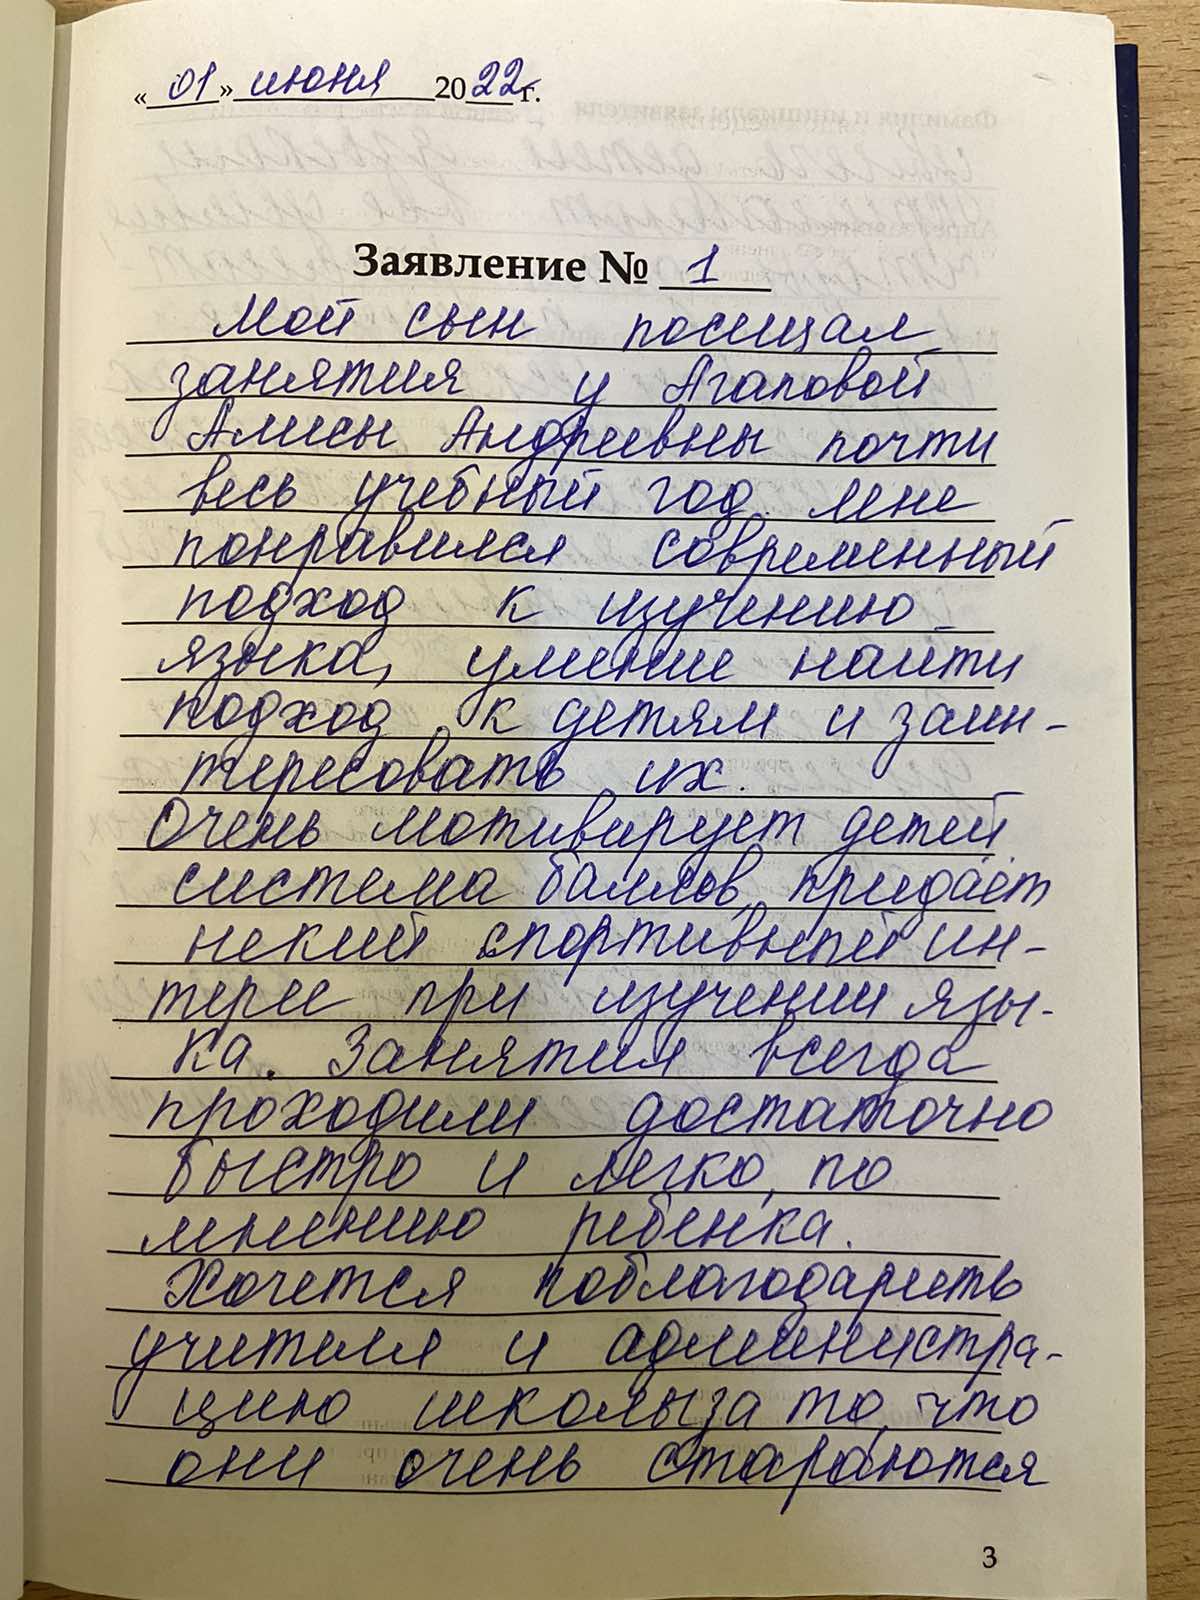 «01» июня 2022 г.
Заявление № 1
Мой сын посещал
занятия у Агаповой
Алисы Андреевны почти
весь учебный год. Мне
понравился современный
подход к изучению
языка, умение найти
подход к детям и заин-
тересовать их.
Очень мотивирует детей
система баллов, придаёт
некий спортивный ин-
терес при изучении язы-
ка. Занятия всегда
проходили достаточно
быстро и легко, по
мнению ребёнка.
Хочется поблагодарить
учителя и администра-
цию школы за то, что
они очень стараются
3